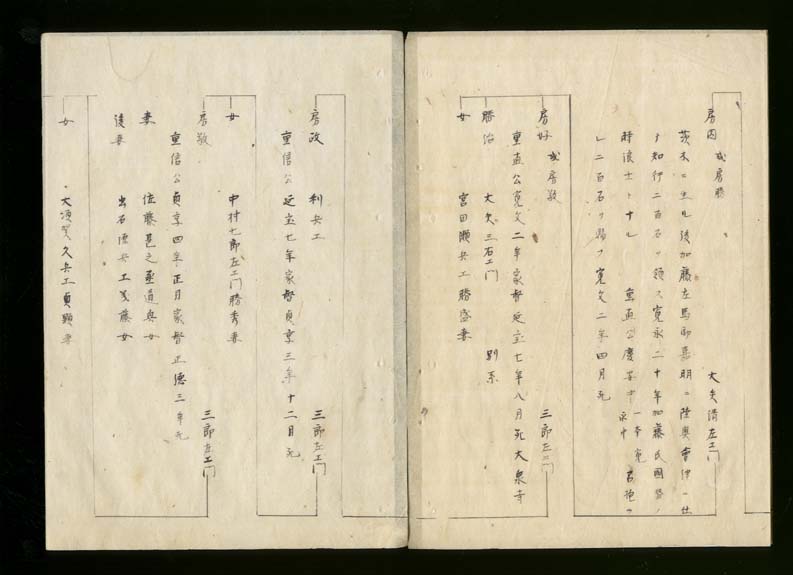 房因 或房勝 大矢清左エ門
茨木ニ生ル後加藤左馬助嘉明ニ陸奥會伊ニ仕
ヘ知行二百石ヲ領ス寛永二十年加藤氏國除ノ
時浪士トナル 重直公慶安中 一本寛永中 召抱ヘラ
レ二百石ヲ賜フ寛文二年四月死
房好 或房敬 三郎左エ門
重直公寛文二年家督延宝七年八月死大泉寺
勝治 大矢三右エ門 別系
女 宮田瀬兵工勝盛妻
房政 利兵工 三郎左エ門
重信公延宝七年家督貞享三年十二月死
女 中村七郎左エ門勝秀妻
房敬 三郎左エ門
重信公貞享四年正月家督正徳三年死
妻 佐藤甚之丞道奥女
後妻 出石傳兵工茂藤女
女 大須賀久兵工貞顕妻